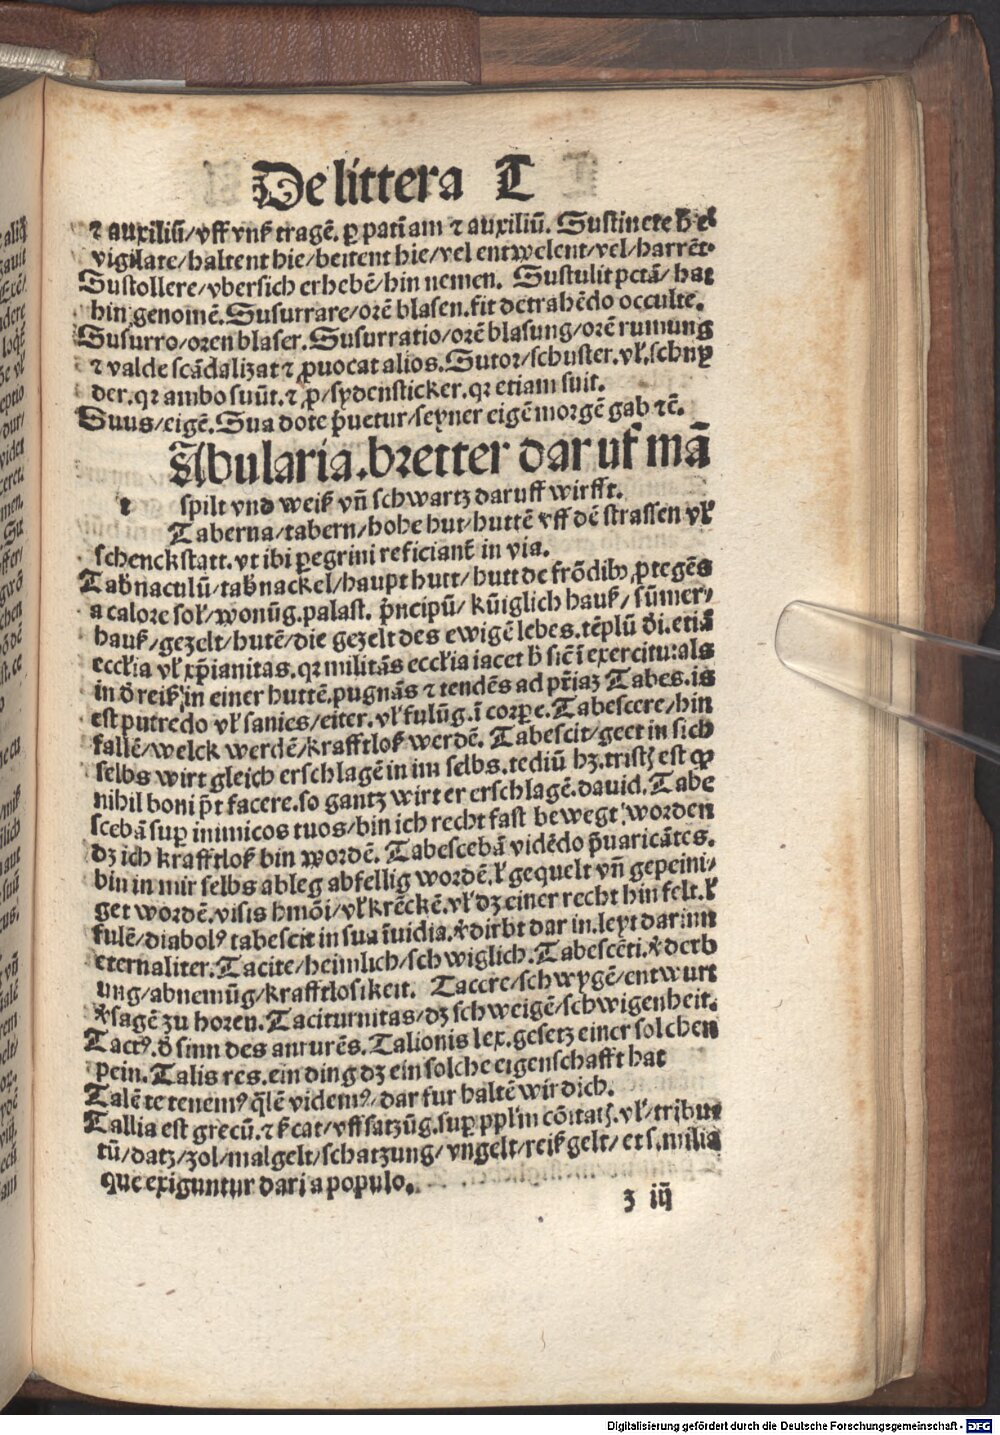 De littera T
⁊ auxiliū/vff vnß tragē. ꝑ patiam ⁊ auxiliū. Sustinete
vigilate/haltent hie/beitent hie/vel entwelent/vel/harrēt.
Sustollere/vbersich erhebē/hin nemen. Sustulit pctā/hat
hin genomē. Susurrare/orē blasen. fit detrahēdo occulte.
Susurro/oren blaser. Susurratio/orē blasung/orē rumung
⁊ valde scādalizat ⁊ ꝓuocat alios. Sutor/schuster. vł. schny
der. qꝛ ambo suūt. ⁊ ꝓ/sydensticker. qꝛ etiam suit.
Suus/eigē. Sua dote p̄uetur/seyner eigē morgē gab ⁊ē.
Abularia. bretter dar uf mā
t spilt vnd weiß vn̄ schwartz daruff wirfft.
Taberna/tabern/hohe hut/huttē vff dē strassen vł
schenckstatt. vt ibi ꝑegrini reficiant̄ in via.
Tab̄naculū/tab̄nackel/haupt hutt/hutt de frōdibꝰ, ꝓtegēs
a calore soł/wonūg. palast. p̄ncipū/kūiglich hauß/sūmer/
hauß/gezelt/hutē/die gezelt des ewigē lebēs. tēplū d̄i. etiā
eccłia vł xp̄ianitas. qꝛ militās eccłia iacet h̄ sic̄ ī exercitu: als
in d̄ reiß in einer huttē. pugnās ⁊ tendēs ad pr̄iaz Tabes. is
est putredo vł sanies/eiter. vł fulūg. ī corꝑe. Tabescere/hin
fallē/welck werdē/krafftloß werdē. Tabescit/geet in sich
selbs wirt gleich erschlagē in im selbs. tediū hꝫ. tristꝫ est ꝙ
nihil boni pōt facere. so gantz wirt er erschlagē. dauid. Tabe
scebā suꝑ inimicos tuos/bin ich recht fast bewegt worden
dꝫ ich krafftloß bin wordē. Tabescebā vidēdo p̄uaricātes.
bin in mir selbs ableg abfellig wordē. ł gequelt vn̄ gepeini/
get wordē. visis hmōi/vł krēckē. vł dꝫ einer recht hin felt. ł
fulē/diabolꝰ tabescit in sua īuidia. v̓dirbt dar in. leyt dar inn
eternaliter. Tacite/heimlich/schwiglich. Tabescēti. v̓derb
ung/abnemūg/krafftlosikeit. Tacere/schwygē/entwurt
v̓sagē zu horen. Taciturnitas/dꝫ schweigē/schwigenheit.
Tactꝰ. d̄ sinn des anrurēs. Talionis lex. gesetz einer solchen
pein. Talis res. ein ding dꝫ ein solche eigenschafft hat
Talē te tenemꝰ q̄lē videmꝰ/dar fur haltē wir dich.
Tallia est grecū. vffsatzūg. suꝑ ppl'm vł/tribu
tū/datz/zol/malgelt/schatzung/vngelt/reiß gelt/et s. milia
que exiguntur dari a populo.
z iij
Digitalisierung gefördert durch die Deutsche Forschungsgemeinschaft - DFG